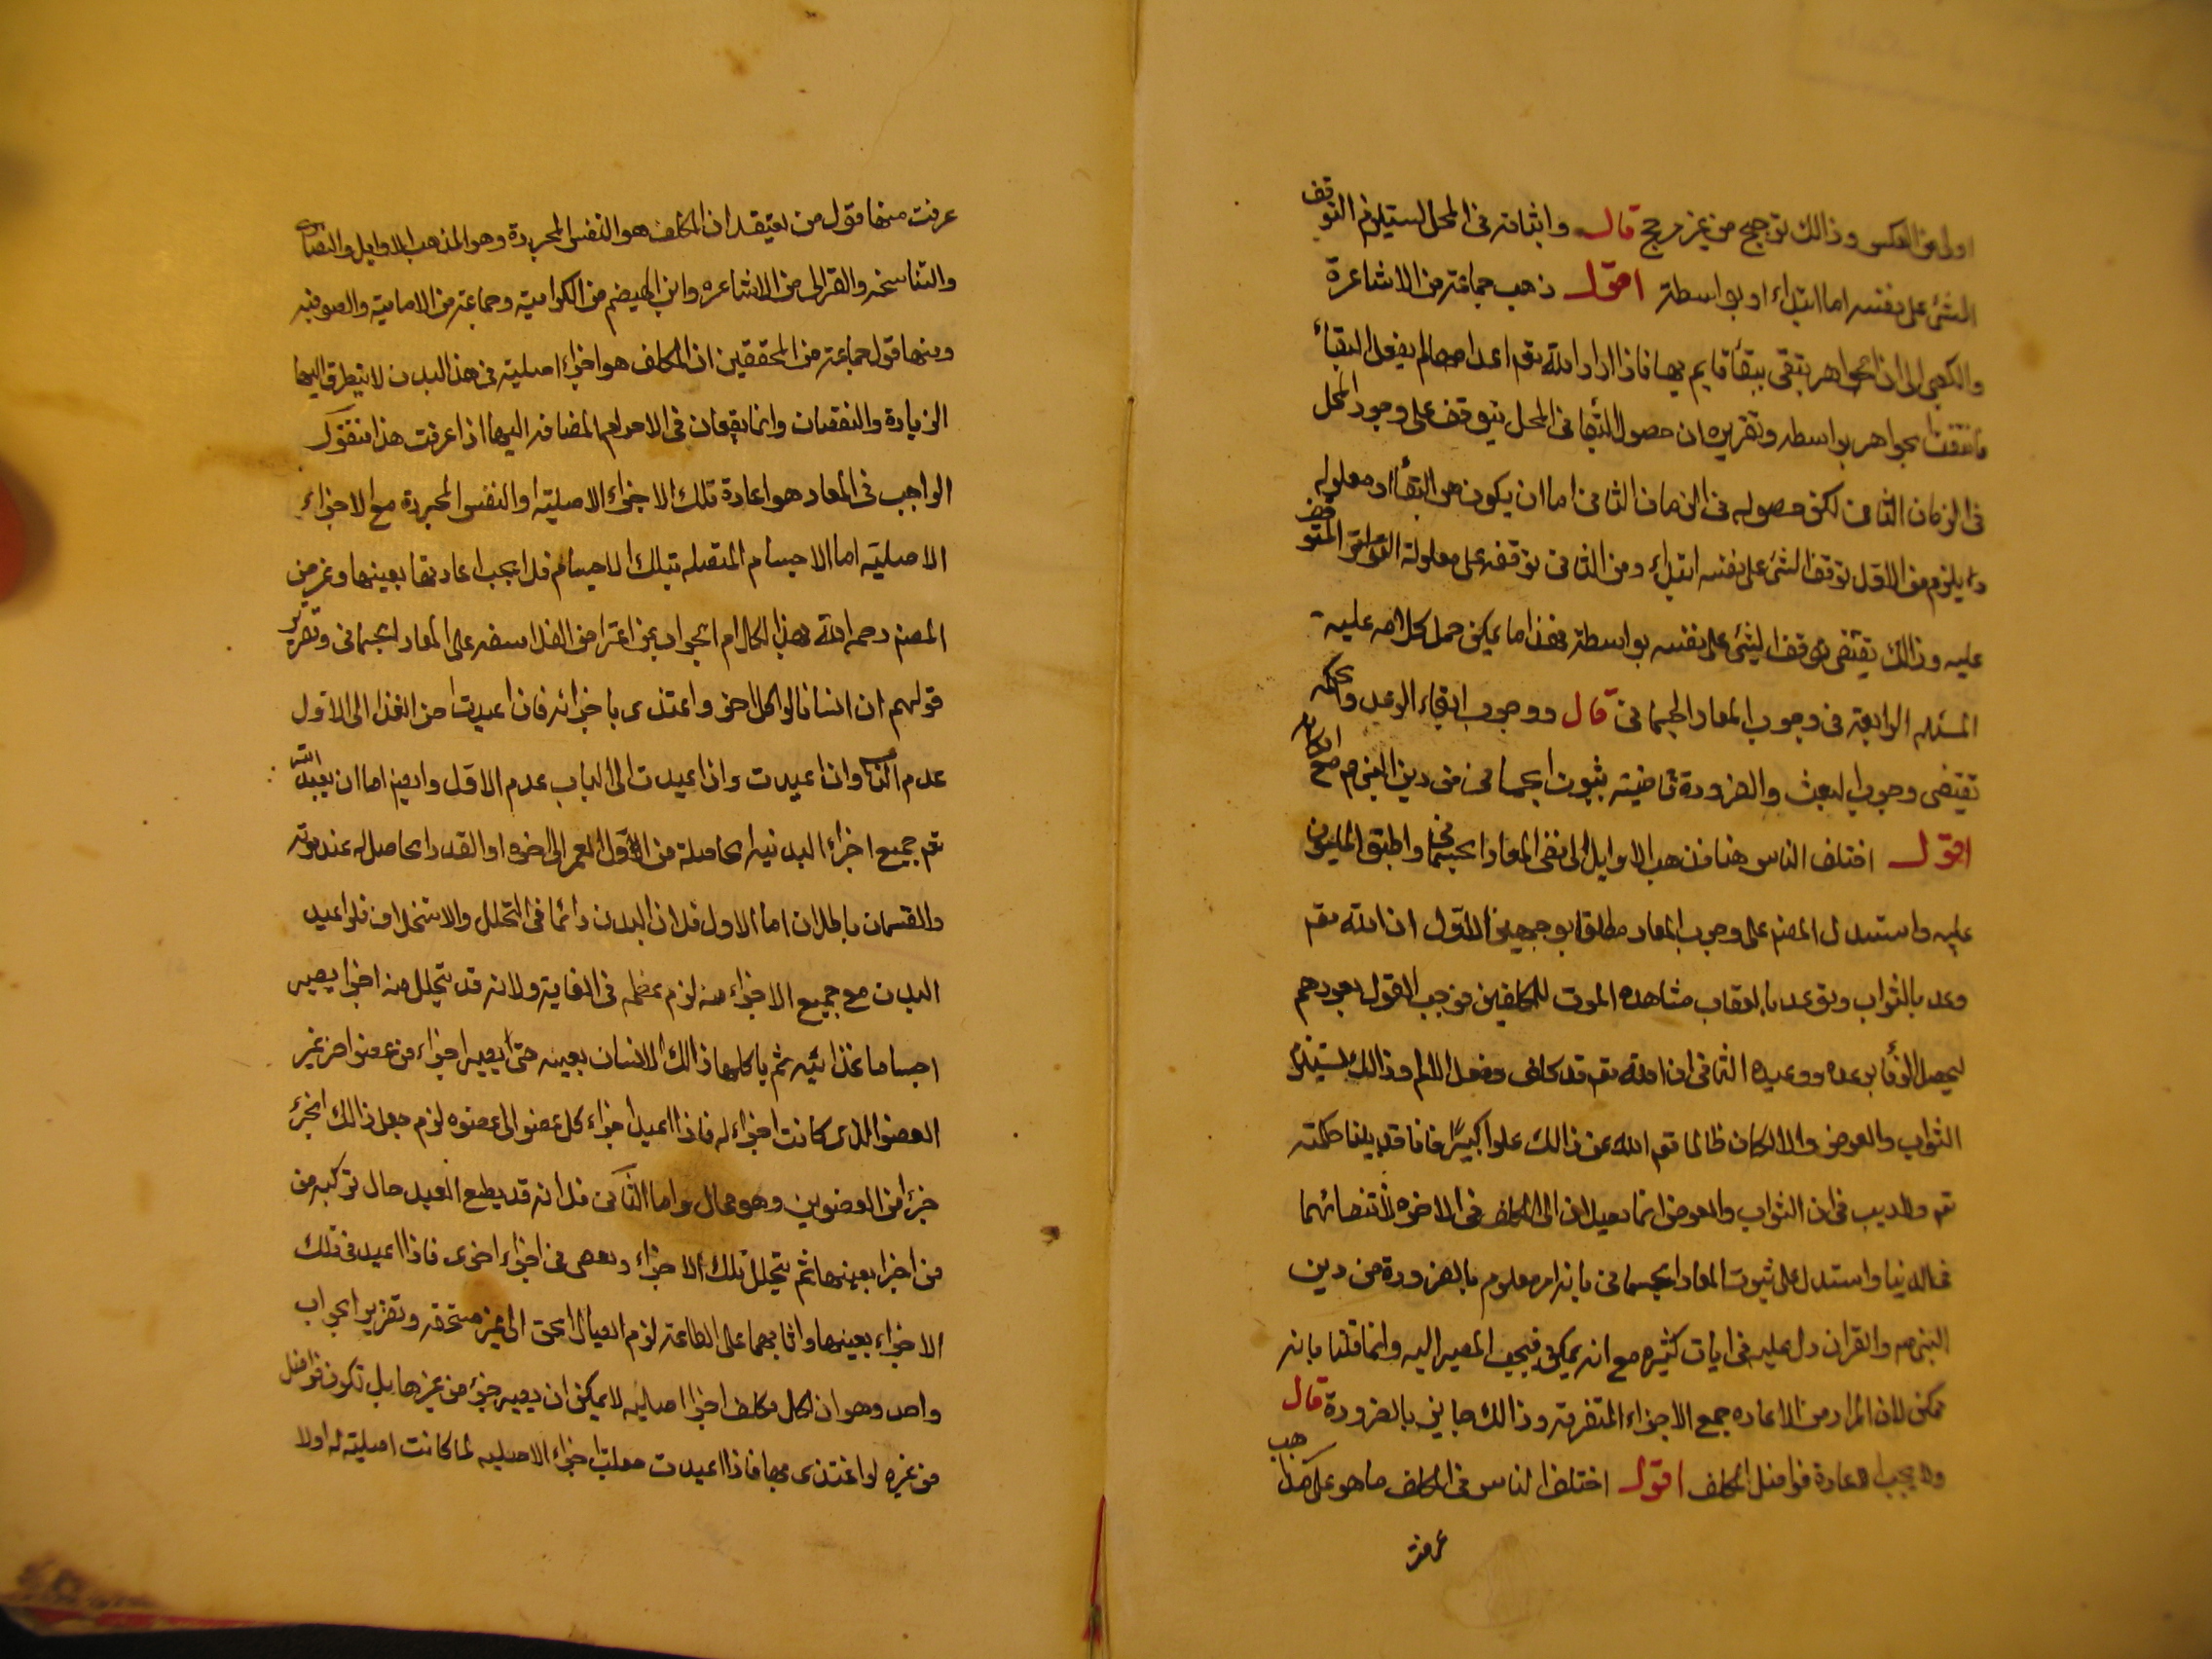 اولى من العكس وذالك ترجيح من غير مرجح قال واثباته فى المحل يستلزم التوقف
الشئ على نفسه اما ابتداء او بواسطة اقول ذهب جماعة من الاشاعرة
والكعبى الى ان الجواهر تبقى ببقاء قايم بها فاذا اراد الله تعم اعدامها لم يفعل البقاء
فانتفت الجواهر بواسطه وتقريره ان حصول البقا فى المحل يتوقف على وجود المحل
فى الزمان الثانى لكن حصوله فى الزمان الثانى اما ان يكون هو البقاء او معلوله
ويلزم من الاول توقف الشئ على نفسه ابتداء ومن الثانى توقفه على معلولة المتوقف
عليه وذالك يقتضى توقف الشئ على نفسه بواسطة فهذا ما يمكن حمل كلامه عليه
المسئله الرابعة فى وجوب المعاد الجسمانى قال ووجوب ايفاء الوعد والحكمه
تقتضى وجوب البعث والضرورة قاضية بثبوت الجسمانى من دين النبى صم مع امكانه
اقول اختلف الناس هنا فذهب الاوايل الى نفى المعاد الجسمانى واطبق المليون
عليه واستدل المصنم على وجوب المعاد مطلقا بوجهين الاول ان الله تعم
وعد بالثواب وتوعد بالعقاب مشاهده الموت للمكلفين فوجب القول بعودهم
ليحصل الوفا بوعده ووعيده الثانى ان الله تعم قد كلف وفعل الالم وذالك يستلزم
الثواب والعوض والا لكان ظالما تعم الله عن ذالك علوا كبيرًا فانا قد بينا حكمته
تعم ولا ريب فى ان الثواب والعوض انما يصلان الى المكلف فى الاخره لانتفائهما
فى الدنيا واستدل على ثبوت المعاد الجسمانى بانه امر معلوم بالضرورة من دين
النبى صم والقران دل عليه فى ايات كثيره مع انه ممكن فيجب المصير اليه وانما قلنا بانه
ممكن لان المراد من الاعاده جمع الاجزاء المتفرقة وذالك جايز بالضرورة قال
ولا يجب اعادة فواضل المكلف اقول اختلف الناس فى المكلف ما هو على مذاهب
عرفت
عرفت منها قول من يعتقد ان المكلف هو النفس المجردة وهو المذهب الاوايل والنصارى
والتناسخيه والغزالى من الاشاعره وابن الهيضم من الكرامية وجماعة من الامامية والصوفيه
ومنها قول جماعة من المحققين ان المكلف هو اجزاء اصلية فى هذا البدن لا يتطرق اليها
الزيادة والنقصان وانما يقعان فى الاجزاء المضافه اليها اذا عرفت هذا فنقول
الواجب فى المعاد هو اعادة تلك الاجزاء الاصلية او النفس المجردة مع الاجزاء
الاصلية اما الاجسام المتصله بتلك الاجسام فلا يجب اعادتها بعينها وغرض
المصنم رحمه الله بهذا الكلام الجواب عن اعتراض الفلاسفه على المعاد الجسمانى وتقرير
قولهم ان انسانا لو اكل اخر واغتذى باجزائه فان اعيدت اجزاء الغذا الى الاول
عدم الثانى وان اعيدت الى الثانى عدم الاول وايضا اما ان يعيد الله
تعم جميع اجزاء البدنيه الحاصلة من اول العمر الى اخره او القدر الحاصل له عند موته
والقسمان باطلان اما الاول فلان البدن دائما فى التحلل والاستخلاف فلو اعيد
البدن مع جميع الاجزاء منه لزم عظمه فى الغاية ولانه قد يتحلل منه اجزا يصير
اجساما غذائيه ثم ياكلها ذالك الانسان بعينه حتى يصير اجزاء من عضو اخر غير
العضو الذى كانت اجزاء له فاذا اعيد اجزاء كل عضو الى عضوه لزم جعل ذالك الجزء
جزءا من العضوين وهو محال واما الثانى فلانه قد يطيع العبد حال تركبه من
من اجزا بعينها ثم يتحلل تلك الاجزاء ويعصى فى اجزاء اخرى فاذا اعيد فى تلك
الاجزاء بعينها واثابها على الطاعة لزم ايصال الحق الى غير مستحقه وتقرير الجواب
واحد وهو ان لكل مكلف اجزا اصليه لا يمكن ان يصير جزء من غيرها بل تكون فواضل
من غيره لو اغتذى بها فاذا اعيدت جعلت اجزاء الاصليه لما كانت اصلية له اولا